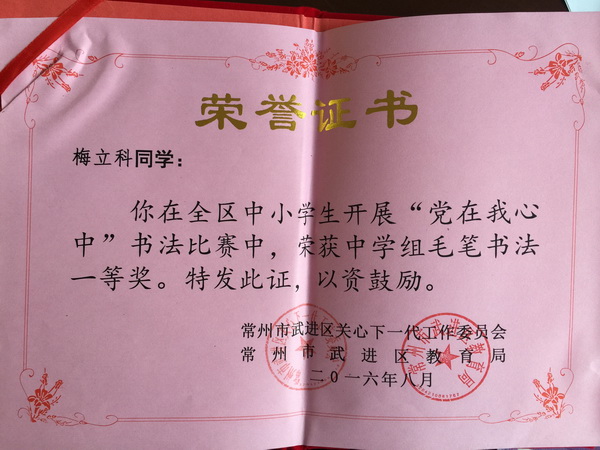 荣誉证书
梅立科同学：
你在全区中小学生开展“党在我心
中”书法比赛中，荣获中学组毛笔书法
一等奖。特发此证，以资鼓励。
常州市武进区关心下一代工作委员会
常州市武进区教育局
二〇一六年八月
常州市武进区教育局